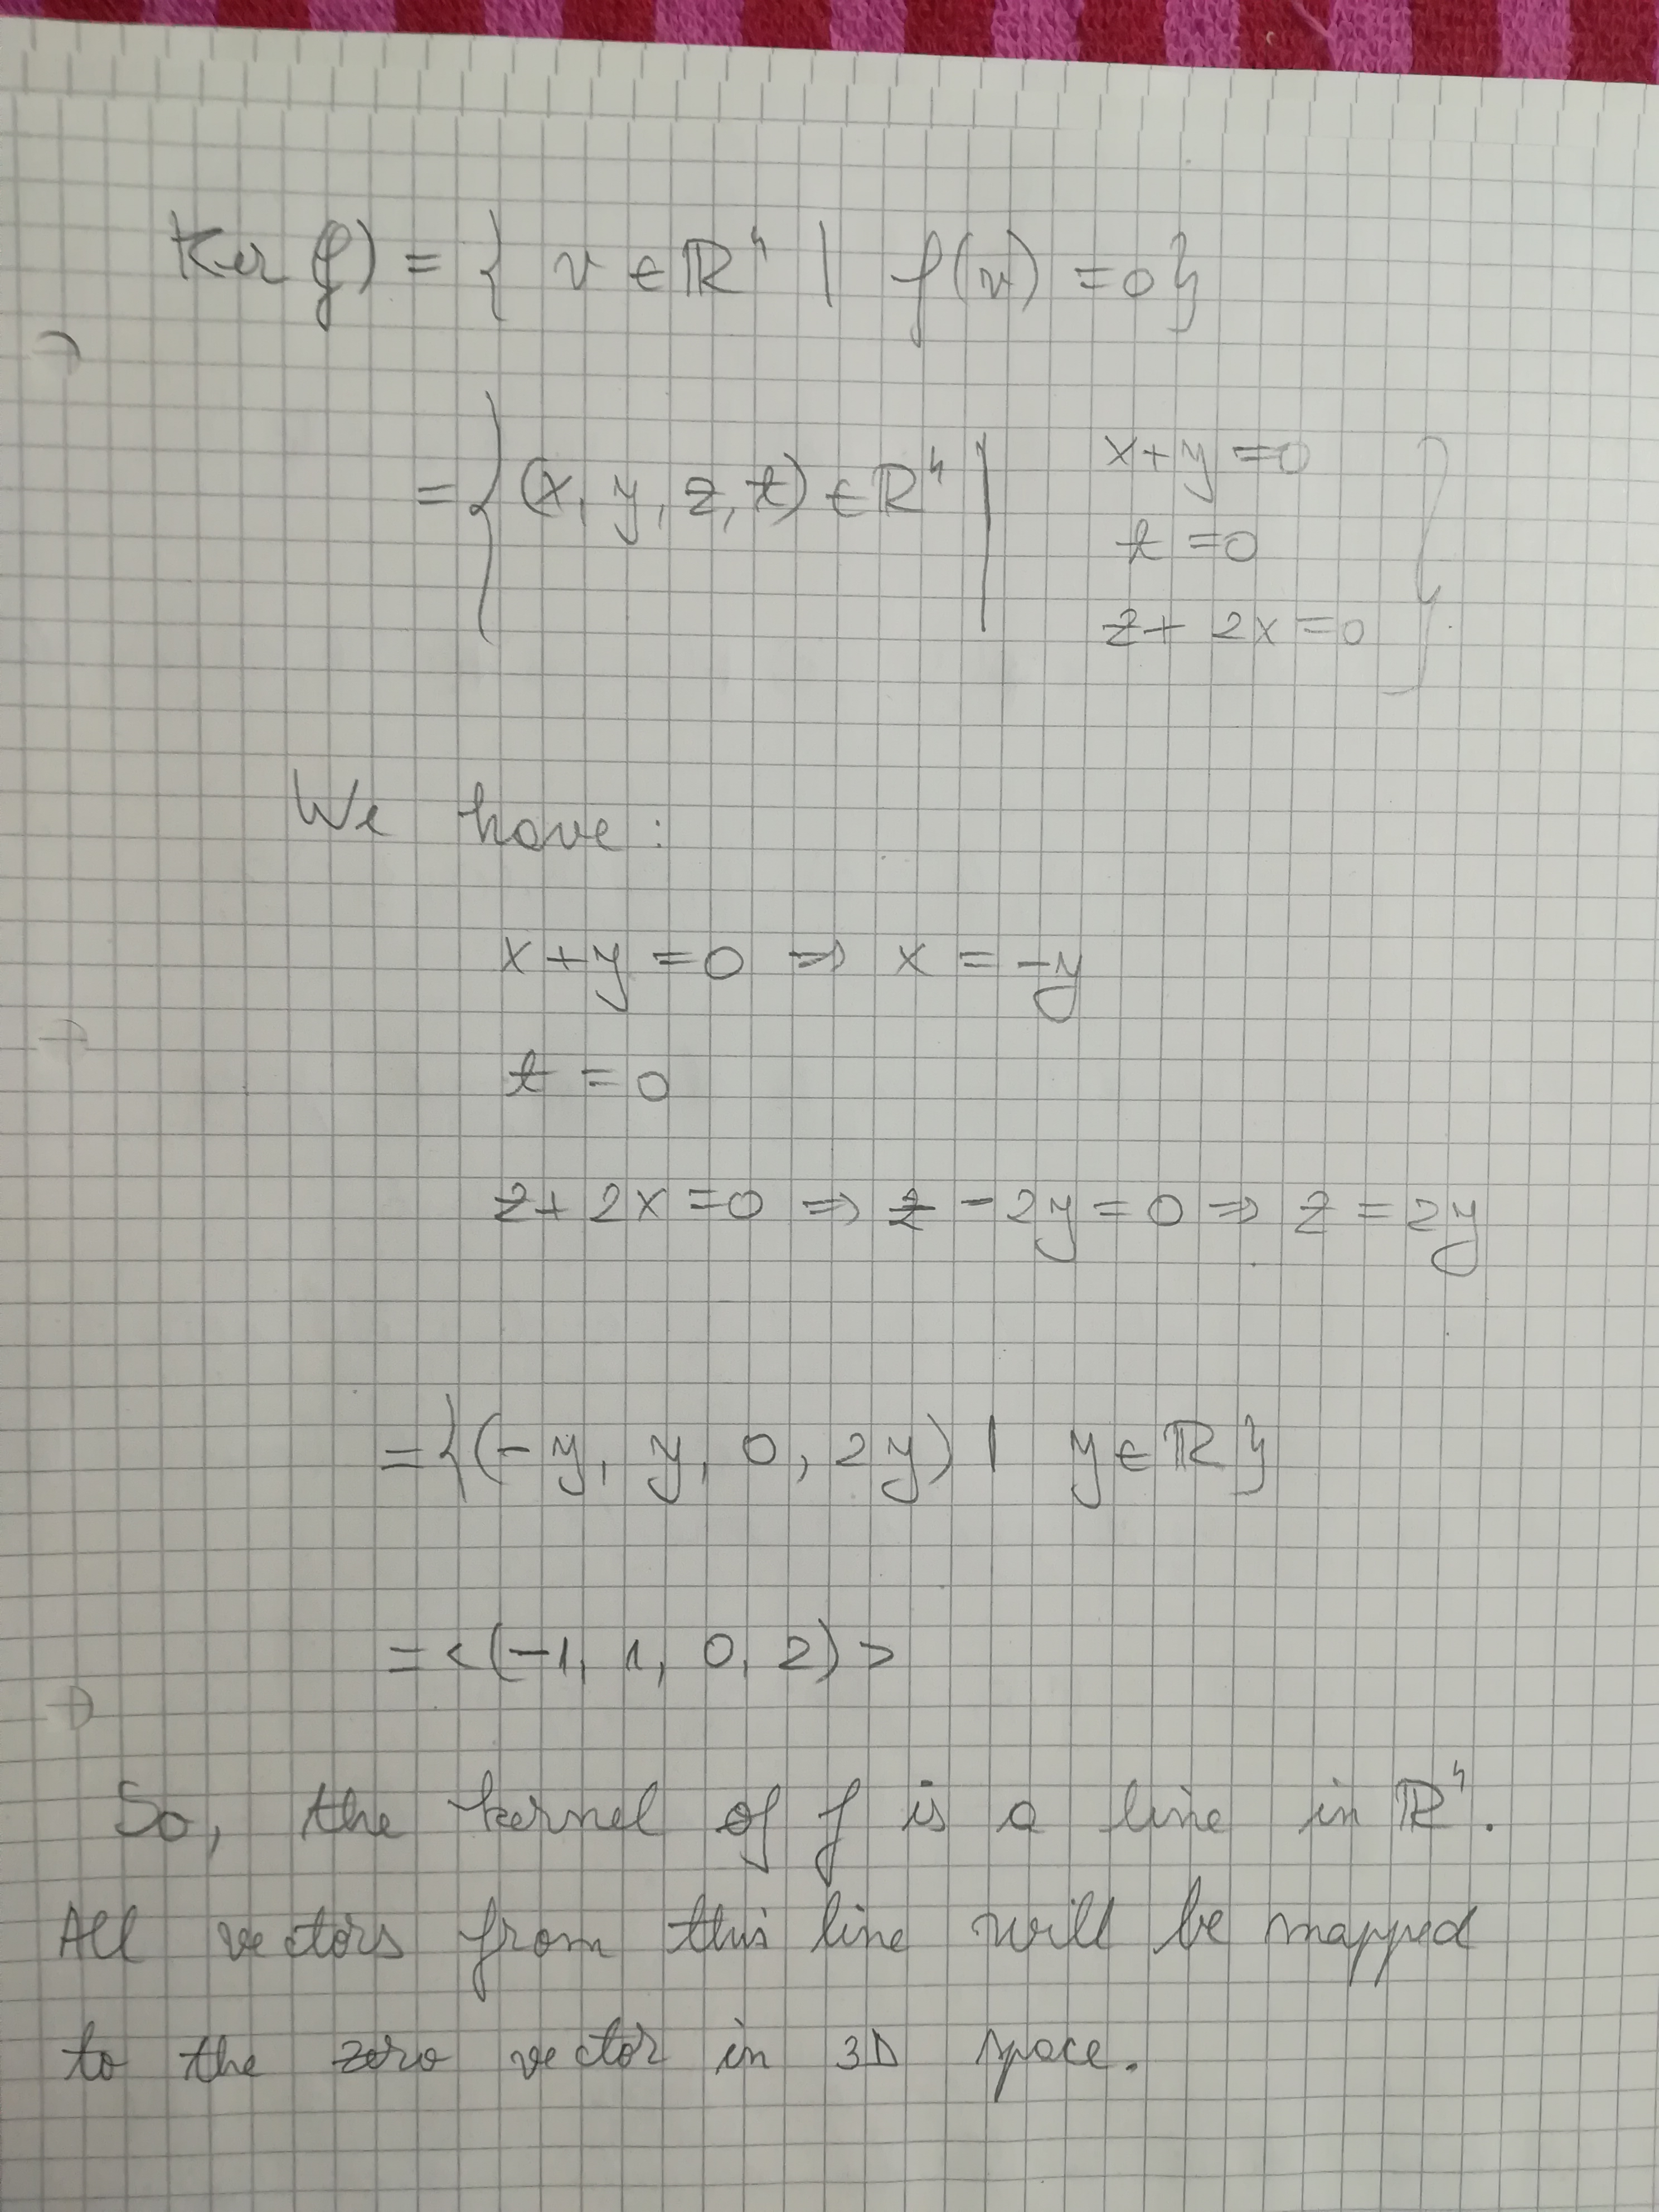 Ker(f) = { v ∈ ℝ⁴ | f(v) = 0 }
x+y = 0
= { (x, y, z, t) ∈ ℝ⁴ | }
t = 0
z + 2x = 0
We have:
x + y = 0 ⇒ x = -y
t = 0
z + 2x = 0 ⇒ z - 2y = 0 ⇒ z = 2y
= { (-y, y, 0, 2y) | y ∈ ℝ }
= <(-1, 1, 0, 2)>
So, the kernel of f is a line in ℝ⁴.
All vectors from this line will be mapped
to the zero vector in 3D space.